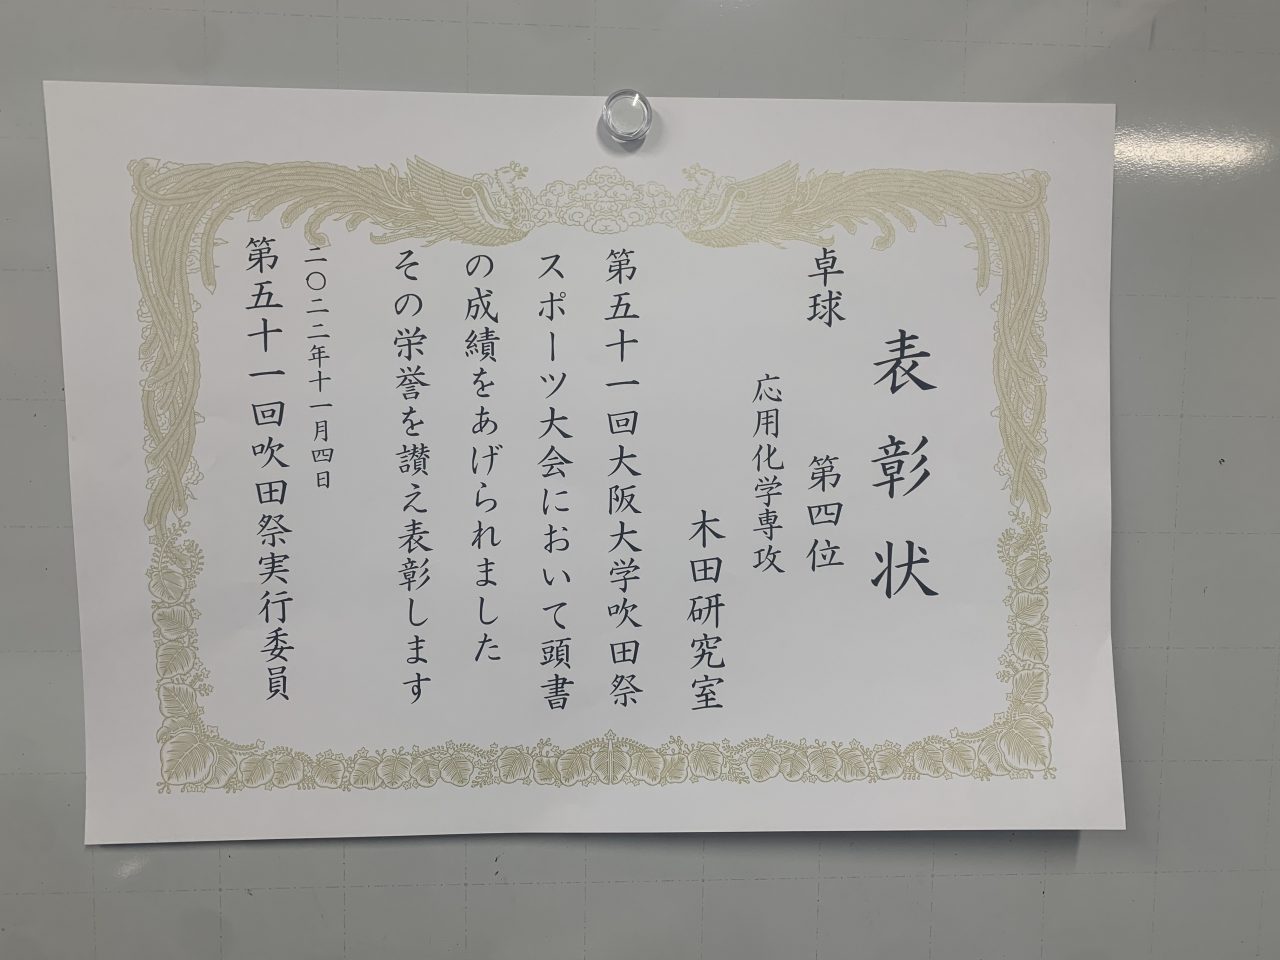 表彰状
卓球 第四位
応用化学専攻
木田研究室
第五十一回大阪大学吹田祭
スポーツ大会において頭書
の成績をあげられました
その栄誉を讃え表彰します
二〇二二年十一月四日
第五十一回吹田祭実行委員